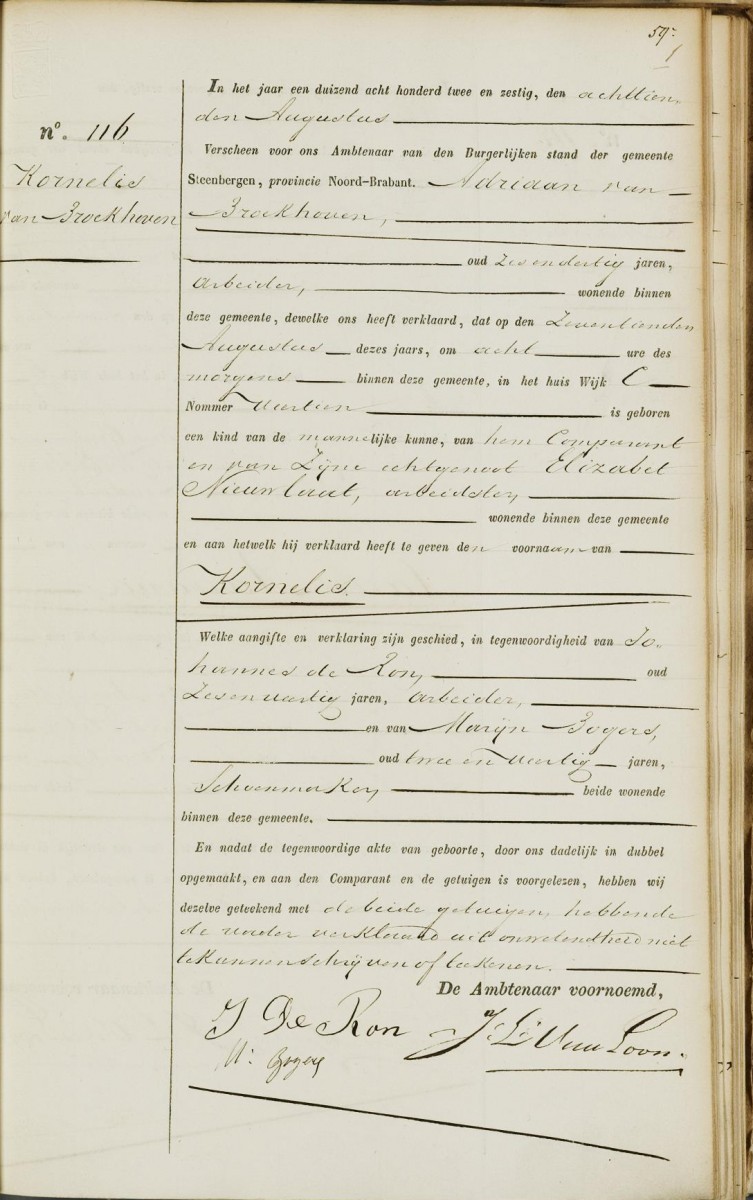 59.
1
nº. 116
Kornelis
van Broekhoven
In het jaar een duizend acht honderd twee en zestig, den achttien
den Augustus
Verscheen voor ons Ambtenaar van den Burgerlijken stand der gemeente
Steenbergen, provincie Noord-Brabant. Adriaan van
Broekhoven,
oud Zesendertig jaren,
arbeider, wonende binnen
deze gemeente, dewelke ons heeft verklaard, dat op den Zeventienden
Augustus dezes jaars, om acht ure des
morgens binnen deze gemeente, in het huis Wijk C
Nommer veertien is geboren
een kind van de mannelijke kunne, van hem Comparant
en van Zijne echtgenoot Elizabet
Nieuwlaat, arbeidster,
wonende binnen deze gemeente
en aan hetwelk hij verklaard heeft te geven den voornaam van
Kornelis.
Welke aangifte en verklaring zijn geschied, in tegenwoordigheid van Jo-
hannes de Ron, oud
Zesenveertig jaren, arbeider,
en van Marijn Bogers,
oud twee en veertig jaren,
Schoenmaker, beide wonende
binnen deze gemeente.
En nadat de tegenwoordige akte van geboorte, door ons dadelijk in dubbel
opgemaakt, en aan den Comparant en de getuigen is voorgelezen, hebben wij
dezelve geteekend met de beide getuigen, hebbende
de vader verklaard uit onwetendheid niet
te kunnen schrijven of teekenen.
De Ambtenaar voornoemd,
J De Ron J. L. Van Loon.
M: Bogers